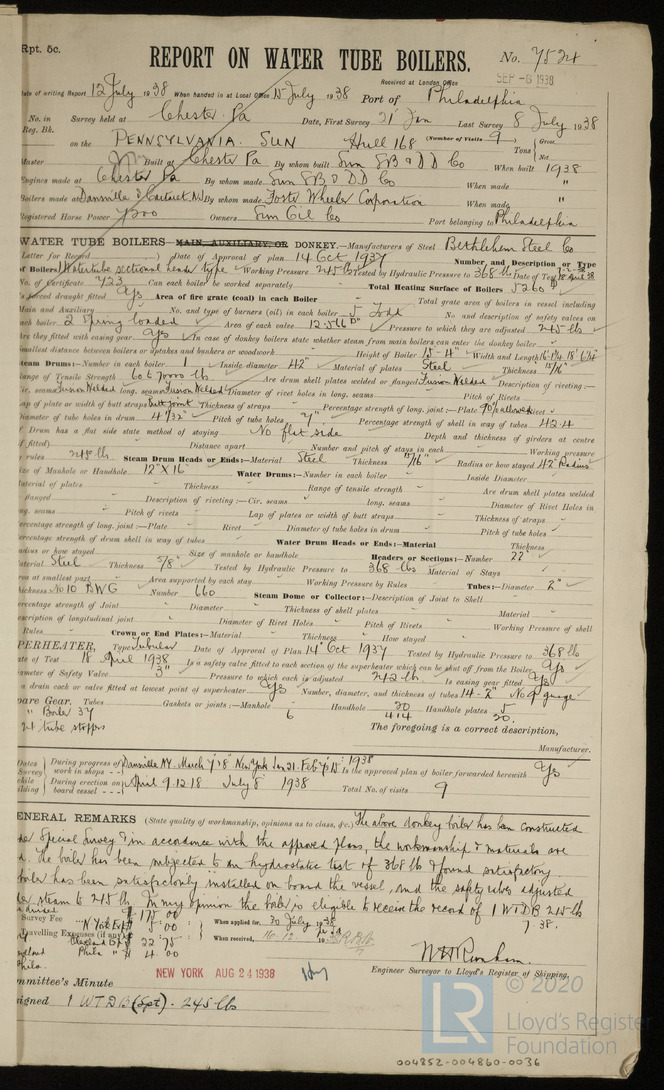 Rpt. 5c.
REPORT ON WATER TUBE BOILERS.
No. 7524
Received at London Office
SEP -6 1938
Date of writing Report 12 July 1938 When handed in at Local Office 15 July 1938 Port of Philadelphia
No. in Survey held at Chester Pa Date, First Survey 21 Jan Last Survey 8 July 1938
Reg. Bk. (Number of Visits 9)
on the PENNSYLVANIA SUN Hull 168 Tons Gross Net
Master Built at Chester Pa By whom built Sun SB & DD Co When built 1938
Engines made at Chester Pa By whom made Sun SB & DD Co When made "
Boilers made at Dansville & Carteret NJ By whom made Foster Wheeler Corporation When made "
Registered Horse Power Owners Sun Oil Co Port belonging to Philadelphia
WATER TUBE BOILERS—MAIN, AUXILIARY, OR DONKEY.—Manufacturers of Steel Bethlehem Steel Co
Letter for Record Date of Approval of plan 14 Oct 1937 Number and Description or Type
of Boilers 1 Watertube sectional header type Working Pressure 245 lbs Tested by Hydraulic Pressure to 368 lbs Date of Test 18 April 38
No. of Certificate 423 Can each boiler be worked separately Total Heating Surface of Boilers 5260
Is forced draught fitted Yes Area of fire grate (coal) in each Boiler Total grate area of boilers in vessel including
Main and Auxiliary No. and type of burners (oil) in each boiler 5 Todd No. and description of safety valves on
each boiler 2 Spring loaded Area of each valve 12.566 Pressure to which they are adjusted 245 lbs
Are they fitted with easing gear Yes In case of donkey boilers state whether steam from main boilers can enter the donkey boiler
Smallest distance between boilers or uptakes and bunkers or woodwork Height of Boiler 15'-4" Width and Length
Steam Drums:—Number in each boiler 1 Inside diameter 42" Material of plates Steel Thickness 11/16"
Range of Tensile Strength 60 to 70000 lbs Are drum shell plates welded or flanged Fusion Welded Description of riveting:—
Cir. seams Fusion Welded long. seams Fusion Welded Diameter of rivet holes in long. seams Pitch of Rivets
Lap of plate or width of butt straps Butt joint Thickness of straps Percentage strength of long. joint:—Plate 90% allowed Rivet
Diameter of tube holes in drum 4 1/32" Pitch of tube holes 7" Percentage strength of shell in way of tubes 42.4
If Drum has a flat side state method of staying No flat side Depth and thickness of girders at centre
(if fitted) Distance apart Number and pitch of stays in each Working pressure
by rules 245 lb Steam Drum Heads or Ends:—Material Steel Thickness 11/16 Radius or how stayed 42" Radius
Size of Manhole or Handhole 12" x 16" Water Drums:—Number in each boiler Inside Diameter
Material of plates Thickness Range of tensile strength Are drum shell plates welded
or flanged Description of riveting:—Cir. seams long. seams Diameter of Rivet Holes in
long. seams Pitch of rivets Lap of plates or width of butt straps Thickness of straps
Percentage strength of long. joint:—Plate Rivet Diameter of tube holes in drum Pitch of tube holes
Percentage strength of drum shell in way of tubes Water Drum Heads or Ends:—Material Thickness
Radius or how stayed Size of manhole or handhole Headers or Sections:—Number 22
Material Steel Thickness 5/8" Tested by Hydraulic Pressure to 368 lbs Material of Stays
Area at smallest part Area supported by each stay Working Pressure by Rules Tubes:—Diameter 2"
Thickness No 10 BWG Number 660 Steam Dome or Collector:—Description of Joint to Shell
Percentage strength of Joint Diameter Thickness of shell plates Material
Description of longitudinal joint Diameter of Rivet Holes Pitch of Rivets Working Pressure of shell
by Rules Crown or End Plates:—Material Thickness How stayed
SUPERHEATER, Type Tubular Date of Approval of Plan 14 Oct 1937 Tested by Hydraulic Pressure to 368 lb
Date of Test 18 April 1938 Is a safety valve fitted to each section of the superheater which can be shut off from the Boiler Yes
Diameter of Safety Valve 3" Pressure to which each is adjusted 242 lb. Is easing gear fitted Yes
Is a drain cock or valve fitted at lowest point of superheater Yes Number, diameter, and thickness of tubes 14-2" No 9 gauge
Spare Gear. Tubes Gaskets or joints:—Manhole 6 Handhole 20 414 Handhole plates 5 20.
" Boiler 37
tube stoppers
The foregoing is a correct description,
Manufacturer.
Dates of Survey while building During progress of work in shops - - Dansville NY. March 7 & 18 New York Jan 21. Feb 1938 Is the approved plan of boiler forwarded herewith Yes
During erection on board vessel - - - April 9.12.18 July 8 1938 Total No. of visits 9
GENERAL REMARKS (State quality of workmanship, opinions as to class, &c.) The above donkey boiler has been constructed
under Special Survey & in accordance with the approved plans, the workmanship & materials are
good. The boiler has been subjected to an hydrostatic test of 368 lb & found satisfactory
boiler has been satisfactorily installed on board the vessel, and the safety valves adjusted
under steam to 245 lb. In my opinion the boiler is eligible to receive the record of 1 WTDB 245 lb
7.38.
Survey Fee 175.00 When applied for, 20 July 1938
N York Exp 5.00
Travelling Expenses (if any) Cleveland Exp 22.75 When received,
Phila " 4.00
Engineer Surveyor to Lloyd's Register of Shipping.
NEW YORK AUG 24 1938
Committee's Minute
Assigned 1 WTDB (Spt). 245 lbs
© 2020
LR
Lloyd's Register
Foundation
004852-004860-0036